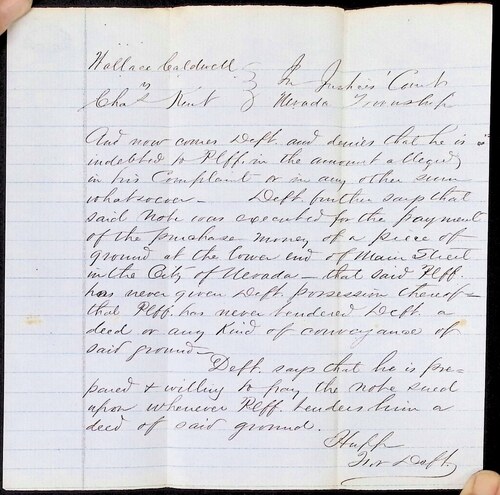 Wallace Caldwell } In Justices' Court
vs
Chas Kent } Nevada Township
And now comes Deft. and denies that he is
indebted to Plff. in the amount alleged
in his Complaint or in any other sum
whatsoever - Deft. further says that
said Note was executed for the payment
of the purchase money of a piece of
ground at the lower end of Main Street
in the City of Nevada - that said Plff.
has never given Deft. possession thereof -
that Plff. has never tendered Deft. a
deed or any kind of conveyance of
said ground -
Deft. says that he is pre=
pared & willing to pay the note sued
upon whenever Plff. tenders him a
deed of said ground.
Hupp
For Deft.